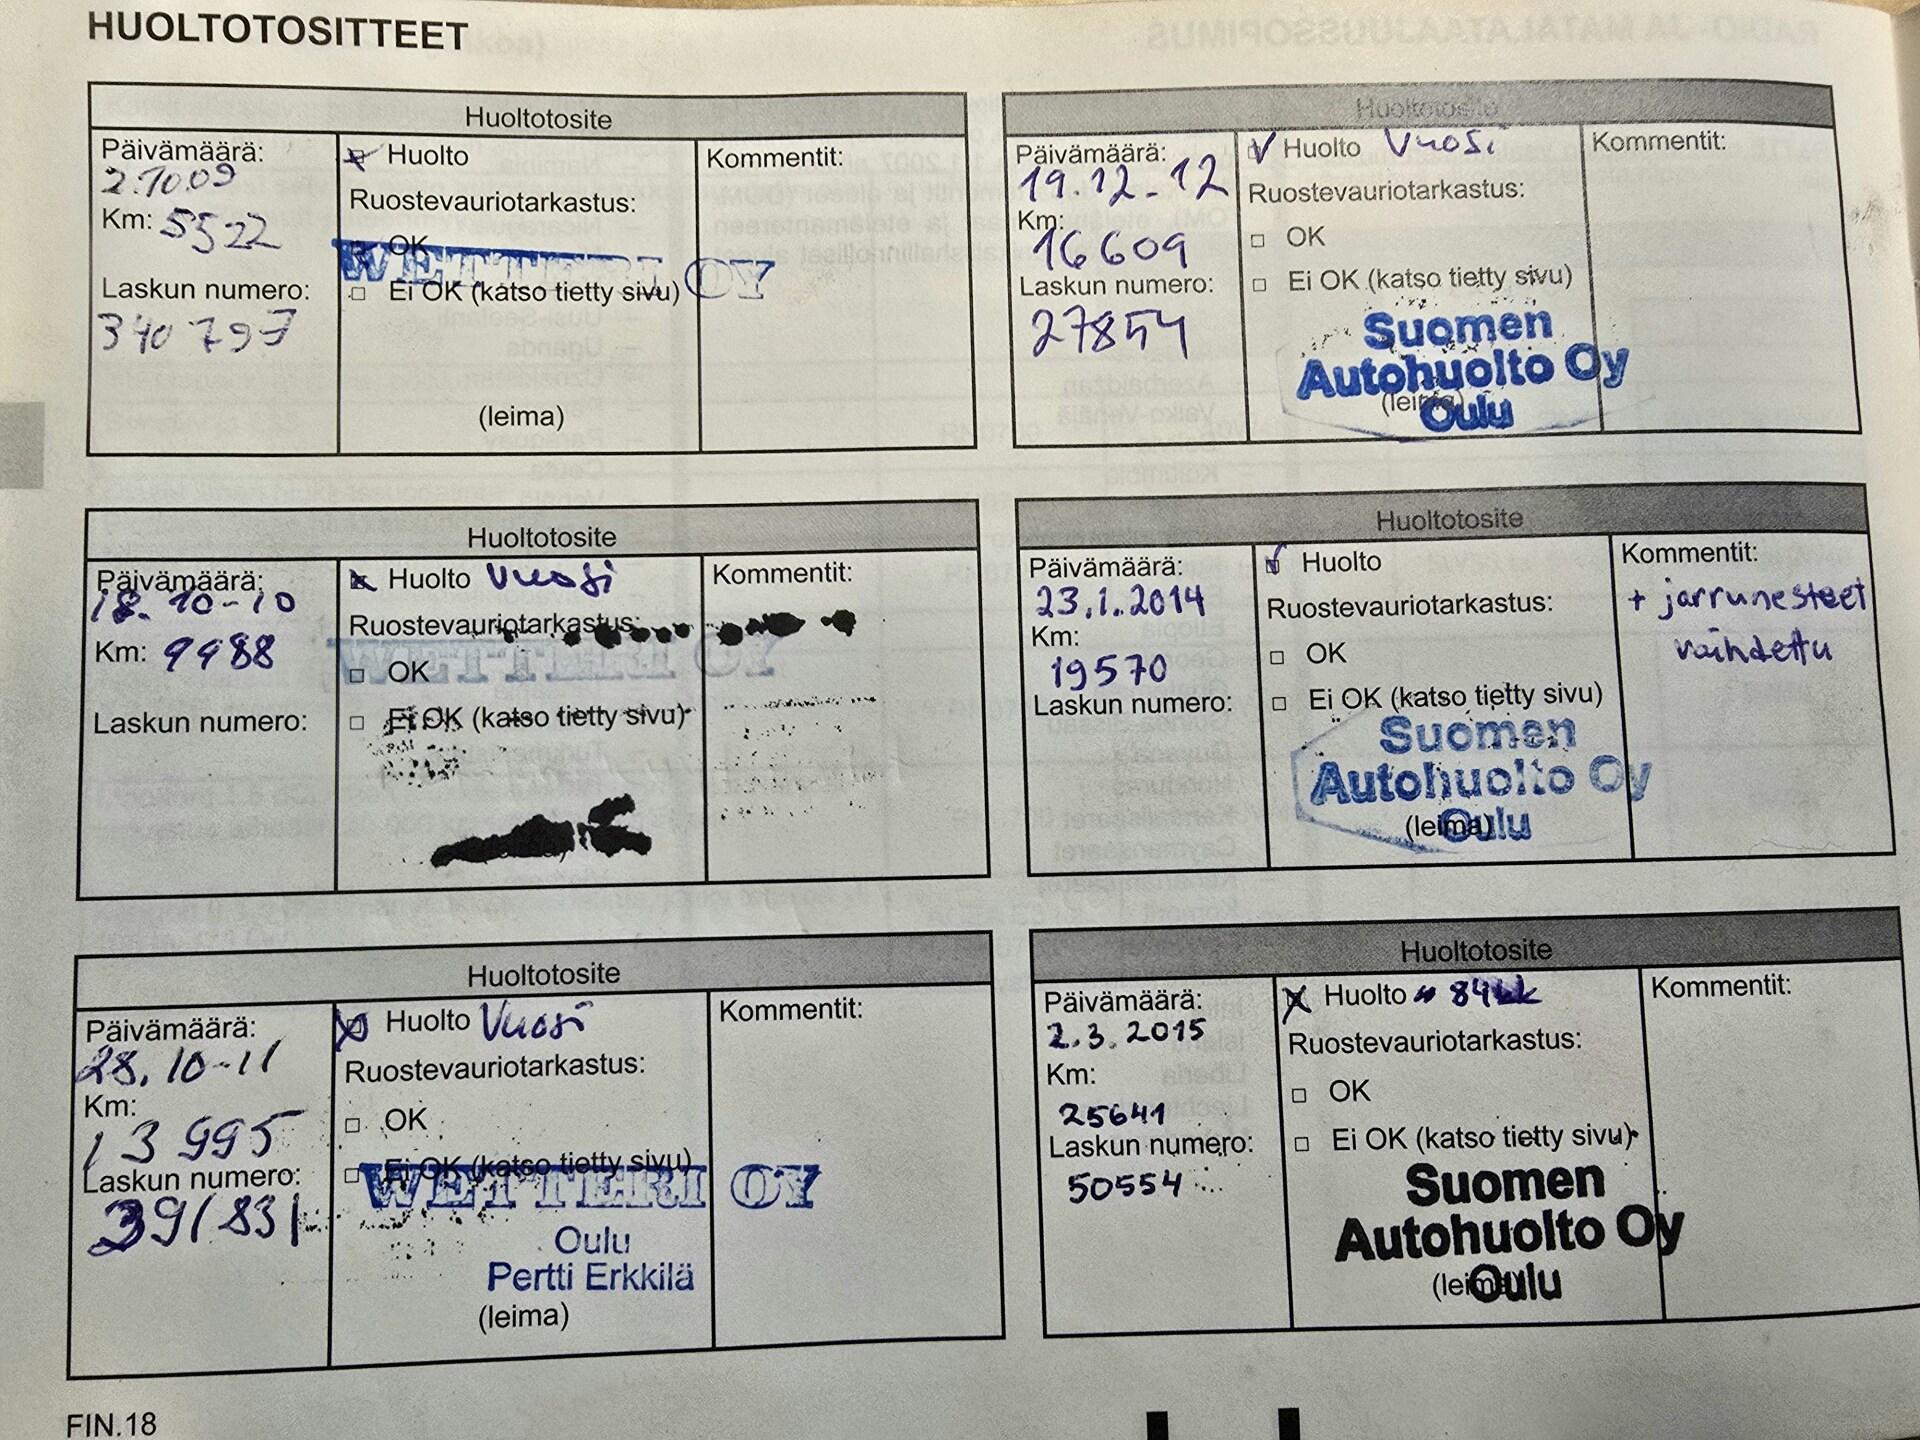 HUOLTOTOSITTEET
Huoltotosite
Päivämäärä:
2.10.09
Km: 5522
Laskun numero:
340797
Huolto
Ruostevauriotarkastus:
OK
WETTERI OY
Ei OK (katso tietty sivu)
(leima)
Kommentit:
Huoltotosite
Päivämäärä:
18.10-10
Km: 9988
Laskun numero:
Huolto Vuosi
Ruostevauriotarkastus:
WETTERI OY
OK
Ei OK (katso tietty sivu)
Kommentit:
Huoltotosite
Päivämäärä:
28.10-11
Km:
13995
Laskun numero:
391831
Huolto Vuosi
Ruostevauriotarkastus:
OK
Ei OK (katso tietty sivu)
WETTERI OY
Oulu
Pertti Erkkilä
(leima)
Kommentit:
Huoltotosite
Päivämäärä:
19.12-12
Km:
16609
Laskun numero:
27854
Huolto Vuosi
Ruostevauriotarkastus:
OK
Ei OK (katso tietty sivu)
Suomen
Autohuolto Oy
(leima)
Oulu
Kommentit:
Huoltotosite
Päivämäärä:
23.1.2014
Km:
19570
Laskun numero:
Huolto
Ruostevauriotarkastus:
OK
Ei OK (katso tietty sivu)
Suomen
Autohuolto Oy
(leima)
Oulu
Kommentit:
+ jarrunesteet
vaihdettu
Huoltotosite
Päivämäärä:
2.3.2015
Km:
25641
Laskun numero:
50554
Huolto 84kk
Ruostevauriotarkastus:
OK
Ei OK (katso tietty sivu)
Suomen
Autohuolto Oy
(leima)
Oulu
Kommentit:
FIN.18